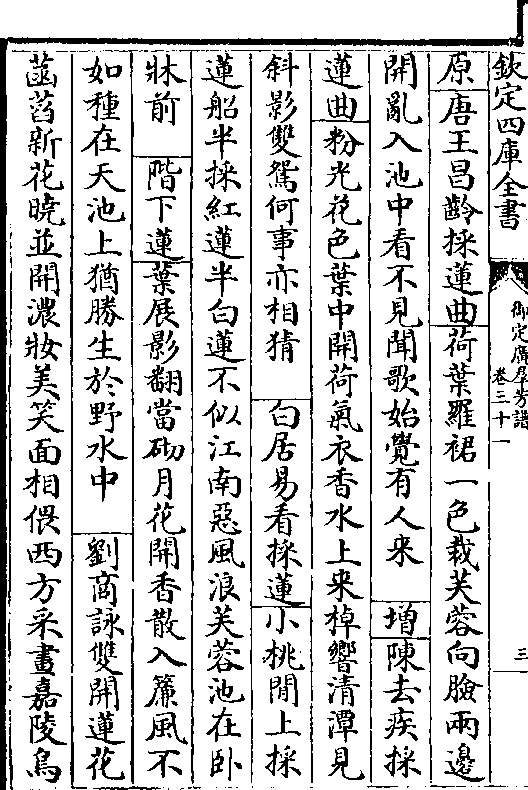 欽定四庫全書
御定廣羣芳譜
卷三十一
三
原唐王昌齡採蓮曲荷葉羅裙一色裁芙蓉向臉兩邊
開亂入池中看不見聞歌始覺有人来 增陳去疾採
蓮曲粉光花色葉中開荷氣衣香水上来棹響清潭見
斜影雙鴛何事亦相猜 白居易看採蓮小桃閒上採
蓮船半採紅蓮半白蓮不似江南惡風浪芙蓉池在卧
牀前 階下蓮葉展影翻當砌月花開香散入簾風不
如種在天池上猶勝生於野水中 劉商詠雙開蓮花
菡萏新花曉並開濃妝美笑面相偎西方采畫嘉陵鳥